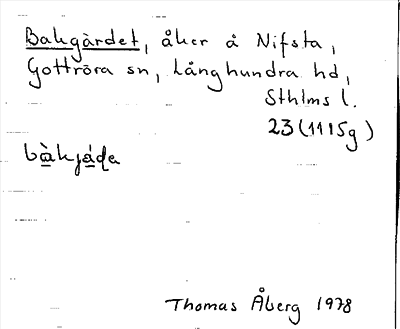 Bakgärdet, åker å Nifsta,
Gottröra sn, Långhundra hd,
Sthlms l.
23 (11I5g)
bàkjáɖa
Thomas Åberg 1978